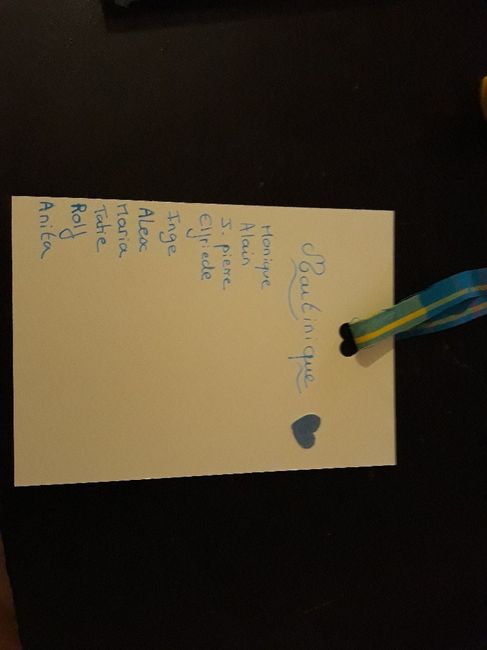 Martinique
Monique
Alain
J. pierre
Elfriede
Inge
Alex
Maria
Tatie
Rolf
Anita